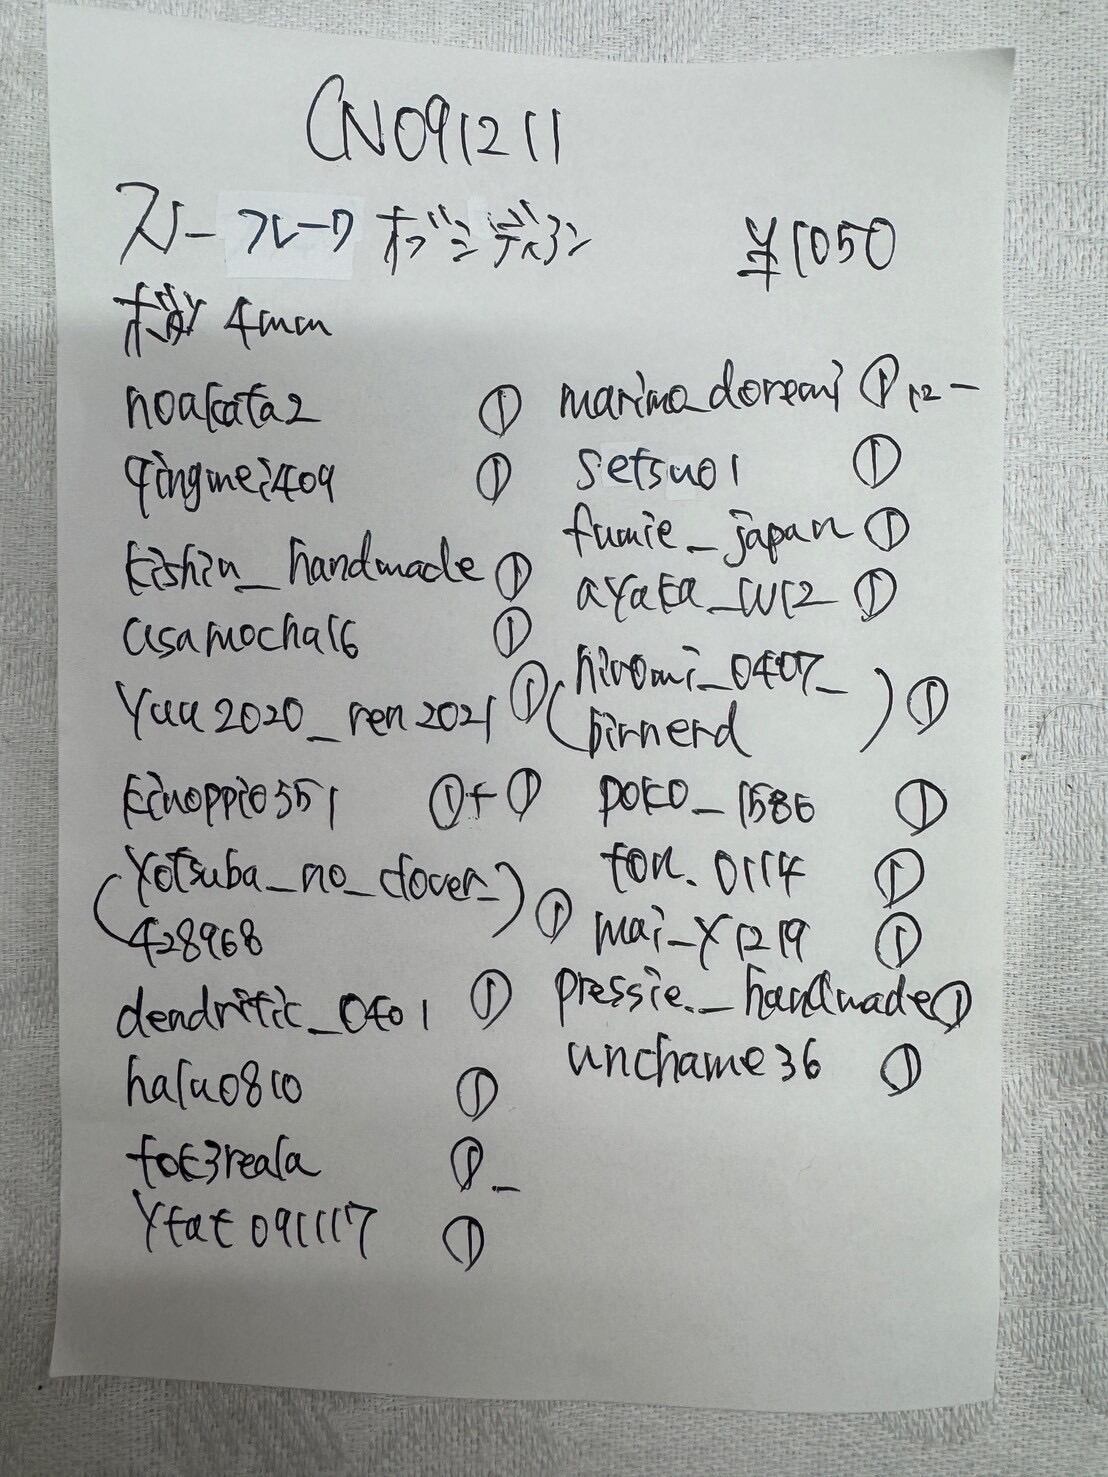 CN091211
スノーフレークオブシディアン ¥1050
桜 4mm
noakata2 ①
qingmei409 ①
kishin_handmade ①
asamocha16 ①
yuu2020_ren2021 ①
kinoppio551 ①+①
(yotsuba_no_clover_
428968) ①
dendritic_0401 ①
halu0810 ①
tok3reala ①_
ytat091117 ①
marimo_doremi ① 12-
setsu01 ①
fumie_japan ①
ayaka_w12 ①
(hiromi_0407_
birnerd) ①
poko_1586 ①
ton.0114 ①
mai_y1219 ①
pressie._handmade ①
unchame36 ①